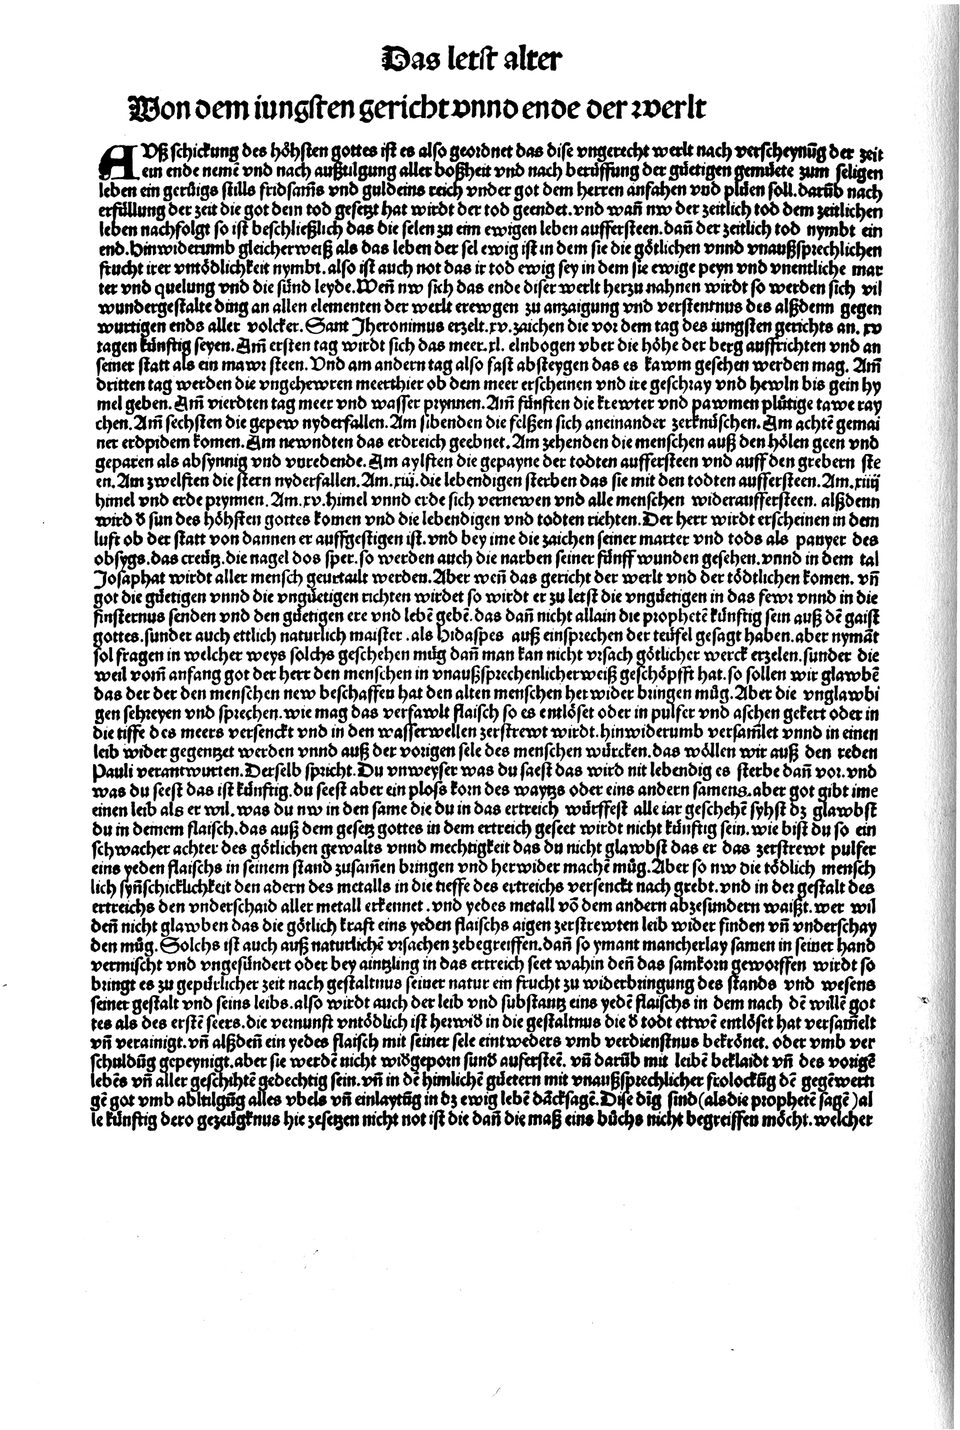 Das letst alter
Von dem iungsten gericht vnnd ende der werlt
AVß schickung des höhsten gottes ist es also geordnet das dise vngerecht werlt nach verscheynũg der zeit
ein ende nemẽ vnd nach außtilgung aller boßheit vnd nach berüffung der güetigen gemüete zum seligen
leben ein gerüigs stills fridsam̃s vnd guldeins reich vnder got dem herren anfahen vnd plüen soll. darũb nach
erfüllung der zeit die got dem tod gesetzt hat wirdt der tod geendet. vnd wañ nw der zeitlich tod dem zeitlichen
leben nachfolgt so ist beschließlich das die selen zu eim ewigen leben auffersteen. dañ der zeitlich tod nymbt ein
end. Hinwiderumb gleicherweiß als das leben der sel ewig ist in dem sie die götlichen vnnd vnaußsprechlichen
frucht irer vntödlichkeit nymbt. also ist auch not das ir tod ewig sey in dem sie ewige peyn vnd vnentliche mar
ter vnd quelung vnd die sünd leyde. Weñ nw sich das ende diser werlt herzu nahnen wirdt so werden sich vil
wundergestalte ding an allen elementen der werlt erewgen zu anzaigung vnd verstentnus des alßdenn gegen
wurtigen ends aller volcker. Sant Jheronimus erzelt .xv. zaichen die vor dem tag des iungsten gerichts an .xv
tagen künftig seyen. Am̃ ersten tag wirdt sich das meer .xl. elnbogen vber die höhe der berg auffrichten vnd an
seiner statt als ein mawr steen. Vnd am andern tag also fast absteygen das es kawm gesehen werden mag. Am̃
dritten tag werden die vngehewren meerthier ob dem meer erscheinen vnd ire geschray vnd hewln bis gein hy
mel geben. Am̃ vierdten tag meer vnd wasser prynnen. Am̃ fünften die krewter vnd pawmen plütige tawe ray
chen. Am̃ sechsten die gepew nyderfallen. Am sibenden die felßen sich aneinander zerknüschen. Am achtẽ gemai
ner erdpidem komen. Am newndten das erdreich geebnet. Am zehenden die menschen auß den hölen geen vnd
geparen als absynnig vnd vnredende. Am aylften die gepayne der todten auffersteen vnd auff den grebern ste
en. Am zwelften die stern nyderfallen. Am .xiij. die lebendigen sterben das sie mit den todten auffersteen. Am .xiiij
himel vnd erde prynnen. Am .xv. himel vnnd erde sich vernewen vnd alle menschen widerauffersteen. alßdenn
wird d̕ sun des höhsten gottes komen vnd die lebendigen vnd todten richten. Der herr wirdt erscheinen in dem
luft ob der statt von dannen er auffgestigen ist. vnd bey ime die zaichen seiner marter vnd tods als panyer des
obsygs. das creütz. die nagel dos sper. so werden auch die narben seiner fünff wunden gesehen. vnnd in dem tal
Josaphat wirdt aller mensch geurtailt werden. Aber weñ das gericht der werlt vnd der tödtlichen komen. vñ
got die güetigen vnnd die vngüetigen richten wirdet so wirdt er zu letst die vngüetigen in das fewr vnnd in die
finsternus senden vnd den güetigen ere vnd lebẽ gebẽ. das dañ nicht allain die prophetẽ künftig sein auß dẽ gaist
gottes. sunder auch ettlich naturlich maister. als Hidaspes auß einsprechen der teüfel gesagt haben. aber nymãt
sol fragen in welcher weys solchs geschehen müg dañ man kan nicht vrsach götlicher werck erzelen. sunder die
weil vom̃ anfang got der herr den menschen in vnaußsprechenlicherweiß geschöpfft hat. so sollen wir glawbẽ
das der der den menschen new beschaffen hat den alten menschen herwider bringen müg. Aber die vnglawbi
gen schreyen vnd sprechen. wie mag das verfawlt flaisch so es entlöset oder in pulfer vnd aschen gekert oder in
die tiffe des meers versenckt vnd in den wasserwellen zerstrewt wirdt. hinwiderumb versam̃let vnnd in einen
leib wider gegentzet werden vnnd auß der vorigen sele des menschen würcken. das wöllen wir auß den reden
Pauli verantwurten. Derselb spricht. Du vnweyser was du saest das wird nit lebendig es sterbe dañ vor. vnd
was du seest das ist künftig. du seest aber ein ploss korn des waytzs oder eins andern samens. aber got gibt ime
einen leib als er wil. was du nw in den same die du in das ertreich würffest alle iar geschehẽ syhst dz glawbst
du in deinem flaisch. das auß dem gesetz gottes in dem ertreich geseet wirdt nicht künftig sein. wie bist du so ein
schwacher achter des götlichen gewalts vnnd mechtigkeit das du nicht glawbst das er das zerstrewt pulfer
eins yeden flaischs in seinem stand zusam̃en bringen vnd herwider machẽ müg. Aber so nw die tödlich mensch
lich syñschicklichkeit den adern des metalls in die tieffe des ertreichs versenckt nach grebt. vnd in der gestalt des
ertreichs den vnderschaid aller metall erkennet. vnd yedes metall võ dem andern abzesundern waißt. wer wil
deñ nicht glawben das die götlich kraft eins yeden flaischs aigen zerstrewten leib wider finden vñ vnderschay
den müg. Solchs ist auch auß naturlichẽ vrsachen zebegreiffen. dañ so ymant mancherlay samen in seiner hand
vermischt vnd vngesündert oder bey aintzling in das ertreich seet wahin deñ das samkorn geworffen wirdt so
bringt es zu gepürlicher zeit nach gestaltnus seiner natur ein frucht zu widerbringung des stands vnd wesens
seiner gestalt vnd seins leibs. also wirdt auch der leib vnd substantz eins yedẽ flaischs in dem nach dẽ willẽ got
tes als des erstẽ seers. die vernunft vntödlich ist herwid̕ in die gestaltnus die d̕ todt ettwẽ entlöset hat versam̃elt
vñ verainigt. vñ alßdeñ ein yedes flaisch mit seiner sele eintweders vmb verdienstnus bekrönet. oder vmb ver
schuldũg gepeynigt. aber sie werdẽ nicht wid̕geporn sund̕ aufersteẽ. vñ darũb mit leibẽ beklaidt vñ des vorigẽ
lebẽs vñ aller geschihtẽ gedechtig sein. vñ in dẽ himlichẽ güetern mit vnaußsprechlicher frolockũg dẽ gegẽwerti
gẽ got vmb abtilgũg alles vbels vñ einlaytũg in dz ewig lebẽ dãcksagẽ. Dise dĩg sind (als die prophetẽ sagẽ) al
le künftig dero gezeügknus hie zesetzen nicht not ist die dañ die maß eins bůchs nicht begreiffen möcht. welcher